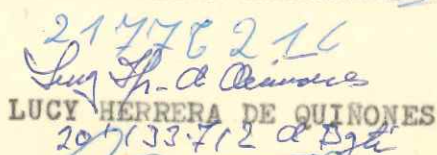 2177621
Lucy H. de Quiñones
LUCY HERRERA DE QUIÑONES
20'133.712 de Bgtá